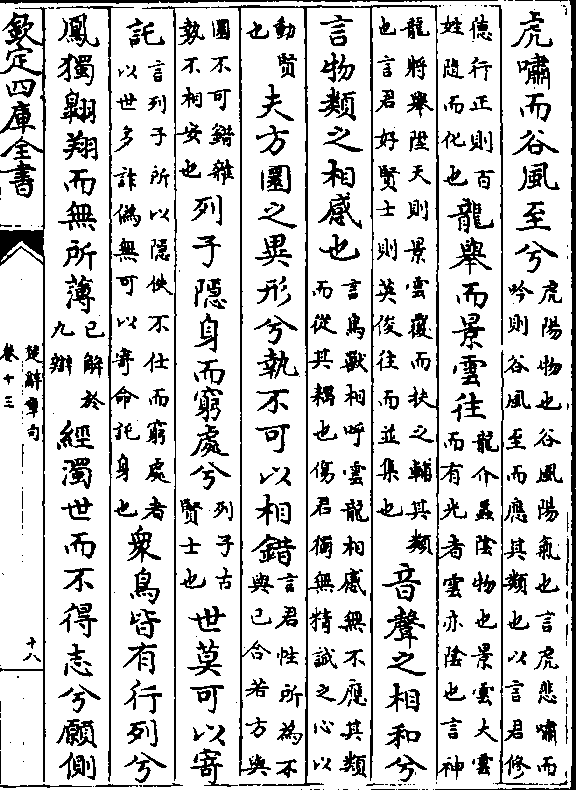 虎嘯而谷風至兮虎陽物也谷風陽氣也言虎悲嘯而吟則谷風至而應其類也以言君修
德行正則百姓隨而化也龍舉而景雲往龍介蟲陰物也景雲大雲而有光者雲亦陰也言神
龍將舉陞天則景雲覆而扶之輔其類也言君好賢士則英俊往而並集也音聲之相和兮
言物類之相感也言鳥獸相呼雲龍相感無不應其類而從其耦也傷君獨無精誠之心以
動賢也夫方圜之異形兮埶不可以相錯言君性所為不與己合若方與
圜不可錯雜埶不相安也列子隱身而窮處兮列子古賢士也世莫可以寄
託言列子所以隱佚不仕而窮處者以世多詐偽無可以寄命託身也衆鳥皆有行列兮
鳳獨翺翔而無所薄已解於九辯經濁世而不得志兮願側
欽定四庫全書
楚辭章句
卷十三
十八